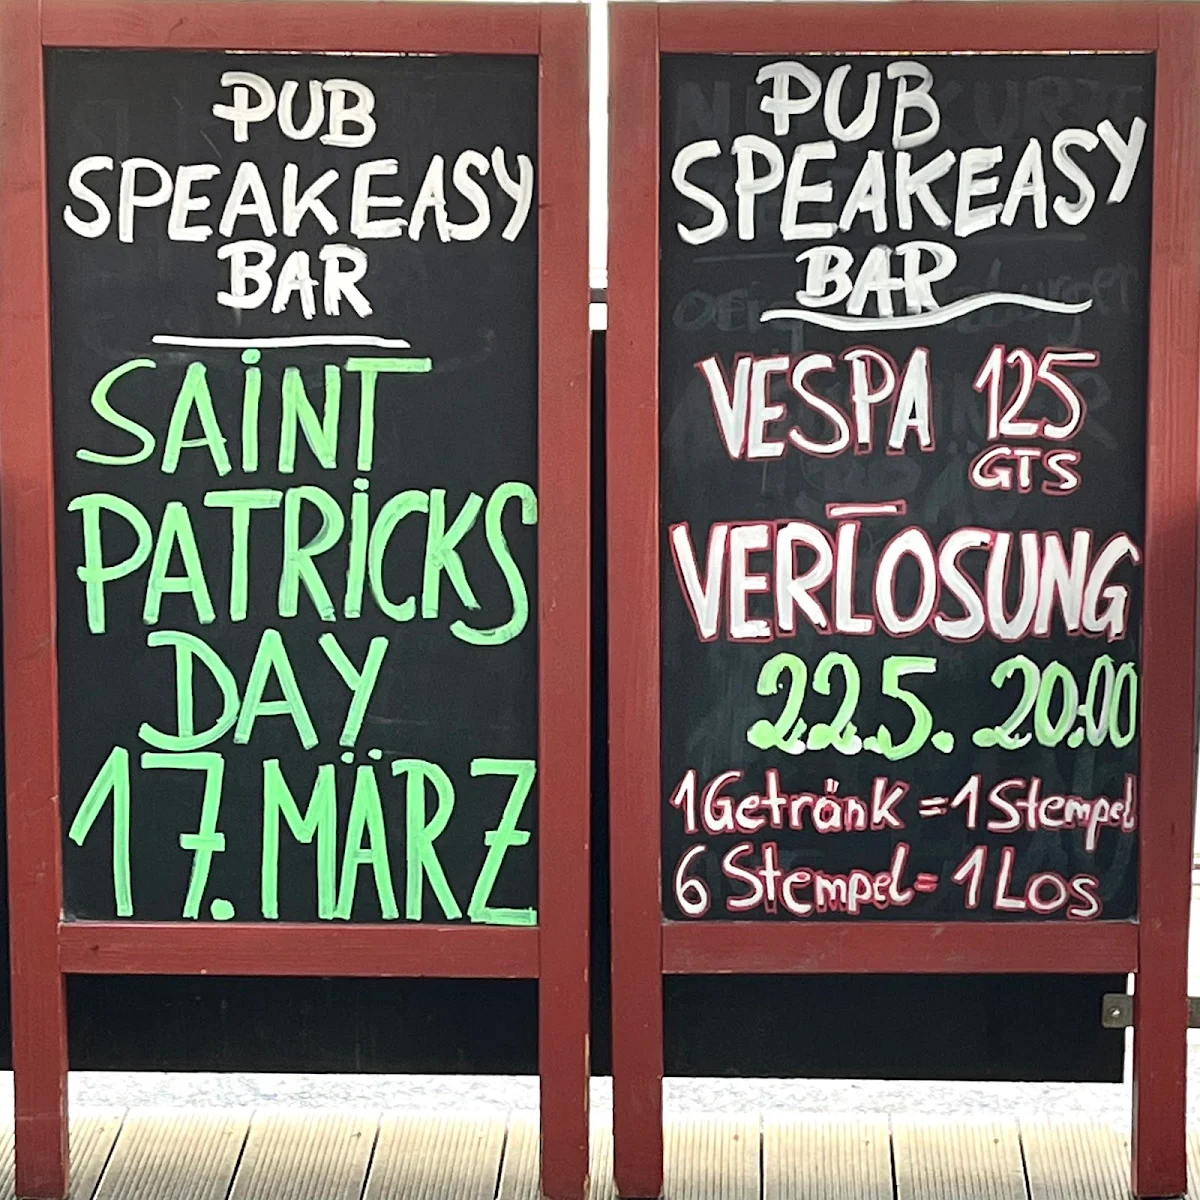 PUB
SPEAKEASY
BAR
SAiNT
PATRiCKS
DAY
17. MÄRZ
PUB
SPEAKEASY
BAR
VESPA 125
GTS
VERLOSUNG
22.5. 20:00
1 Getränk = 1 Stempel
6 Stempel = 1 Los